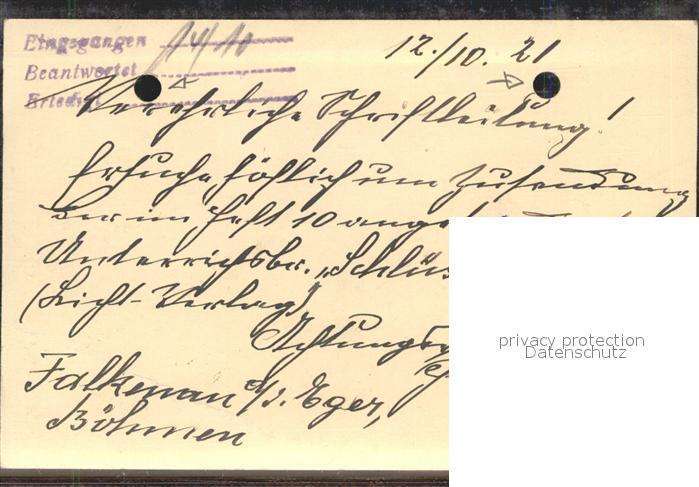 Eingegangen 14/10
Beantwortet
Erledigt
12./10. 21
Verehrliche Schriftleitung!
Ersuche höflich um Zusendung
der im Heft 10
Unterrichtsbr. „Schlüs
(Licht-Verlag)
Achtungsv
Falkenau a/d. Eger,
Böhmen
privacy protection
Datenschutz